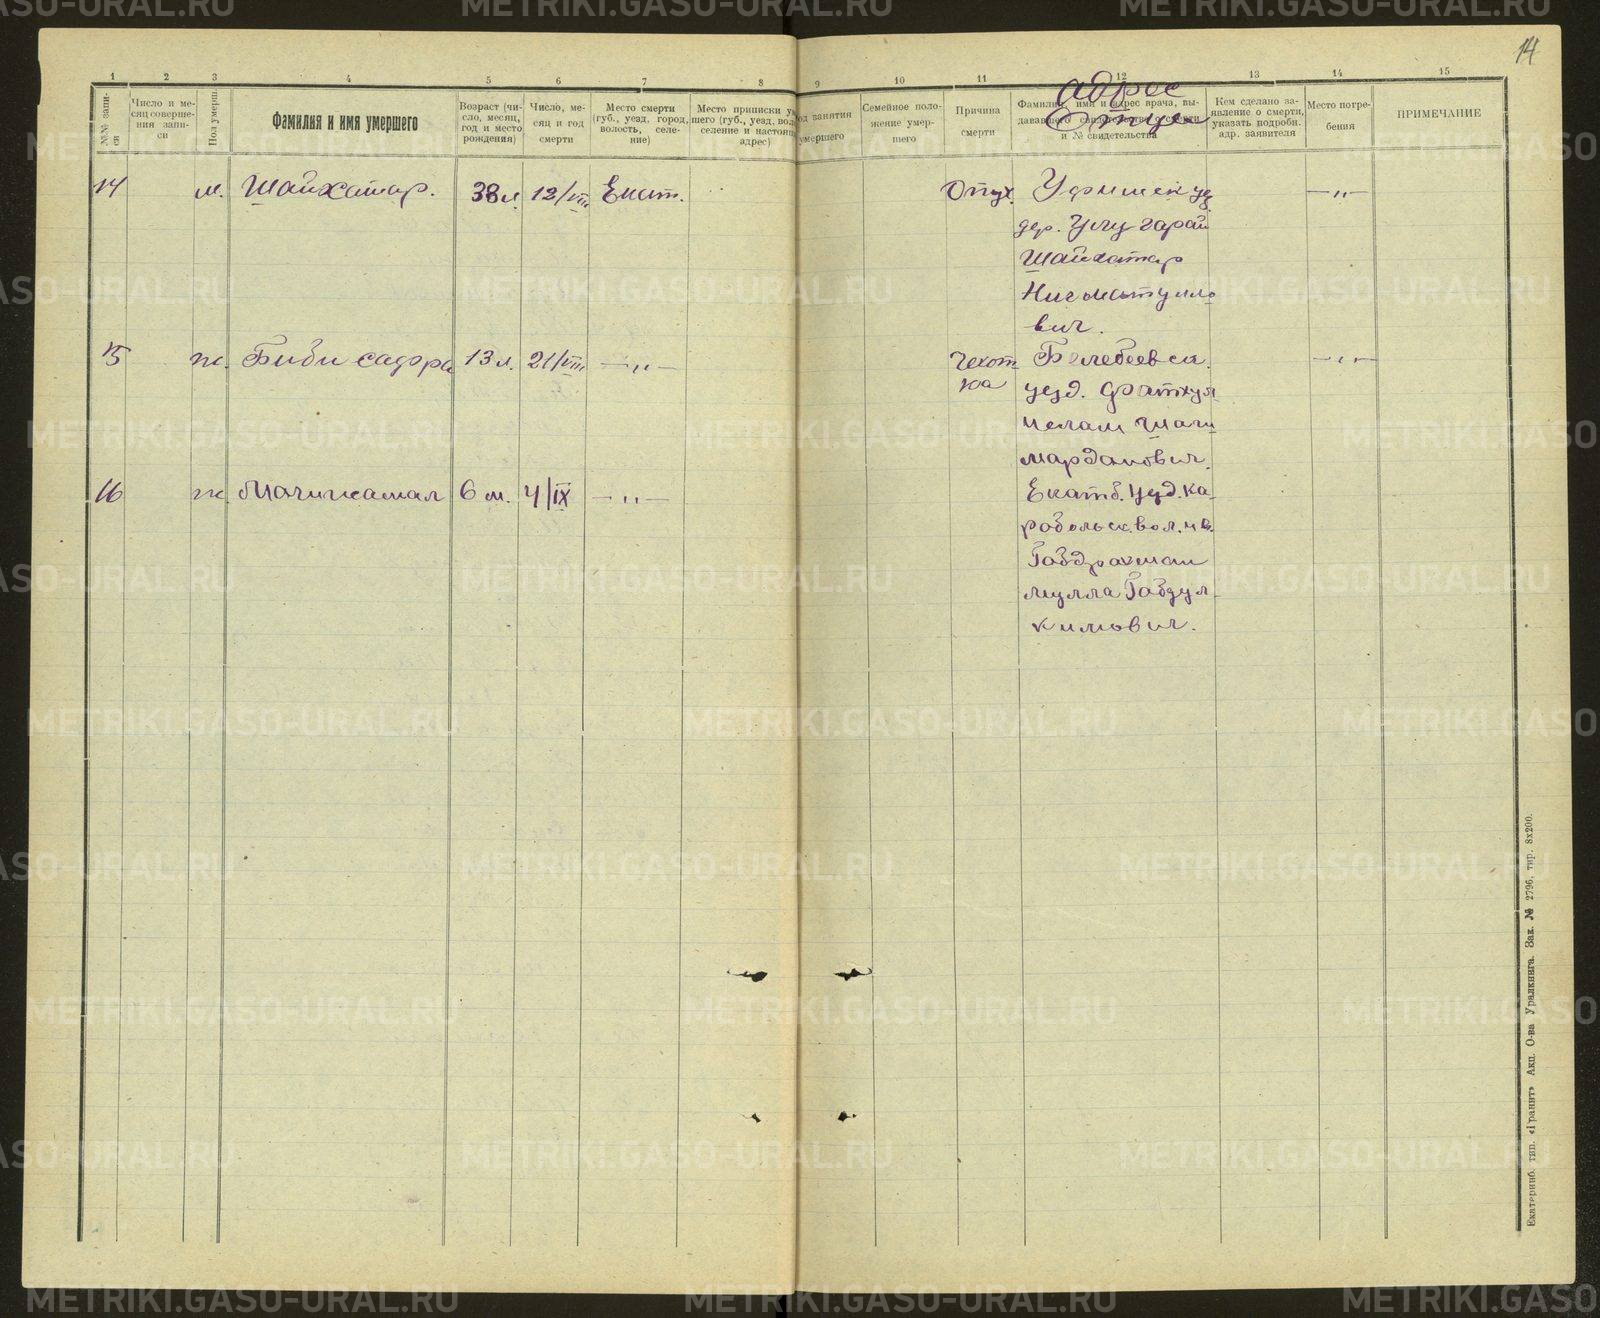 14
1 2 3 4 5 6 7 8 9 10 11 12 13 14 15
№№ запи-
си
Число и ме-
сяц соверше-
ния запи-
си
Пол умерш.
Фамилия и имя умершего
Возраст (чи-
сло, месяц,
год и место
рождения)
Число, ме-
сяц и год
смерти
Место смерти
(губ., уезд, город,
волость, селе-
ние)
Место приписки у
шего (губ., уезд, вол
селение и настоящ
адрес)
од занятия
умершего
Семейное поло-
жение умер-
шего
Причина
смерти
адрес
Отца
Фамилия, имя и адрес врача, вы-
дававшего свидетельство о смерти
и № свидетельства
Кем сделано за-
явление о смерти,
указать подробн.
адр. заявителя
Место погре-
бения
ПРИМЕЧАНИЕ
14 м. Шайхатар. 38 л. 12/VIII Екат. Опух. Уфимск уз. — " —
дер. Улу гарай
Шайхатар
Нигоматулло
вич.
15 ж. Биби сафра 13 л. 21/VIII — " — Чехот- Белебеевск. — " —
ка уезд. Фатхул
ислам Шаги
марданович.
16 ж. Магинкамал 6 м. 4/IX — " — Екатб. уезд. Ка-
рабольск. вол.
Габдрахман
мулла Габдул-
кимович.
Екатеринб. тип. «Гранит» Акц. О-ва Уралкнига. Зак. № 2796, тир. 8х200.
METRIKI.GASO-URAL.RU